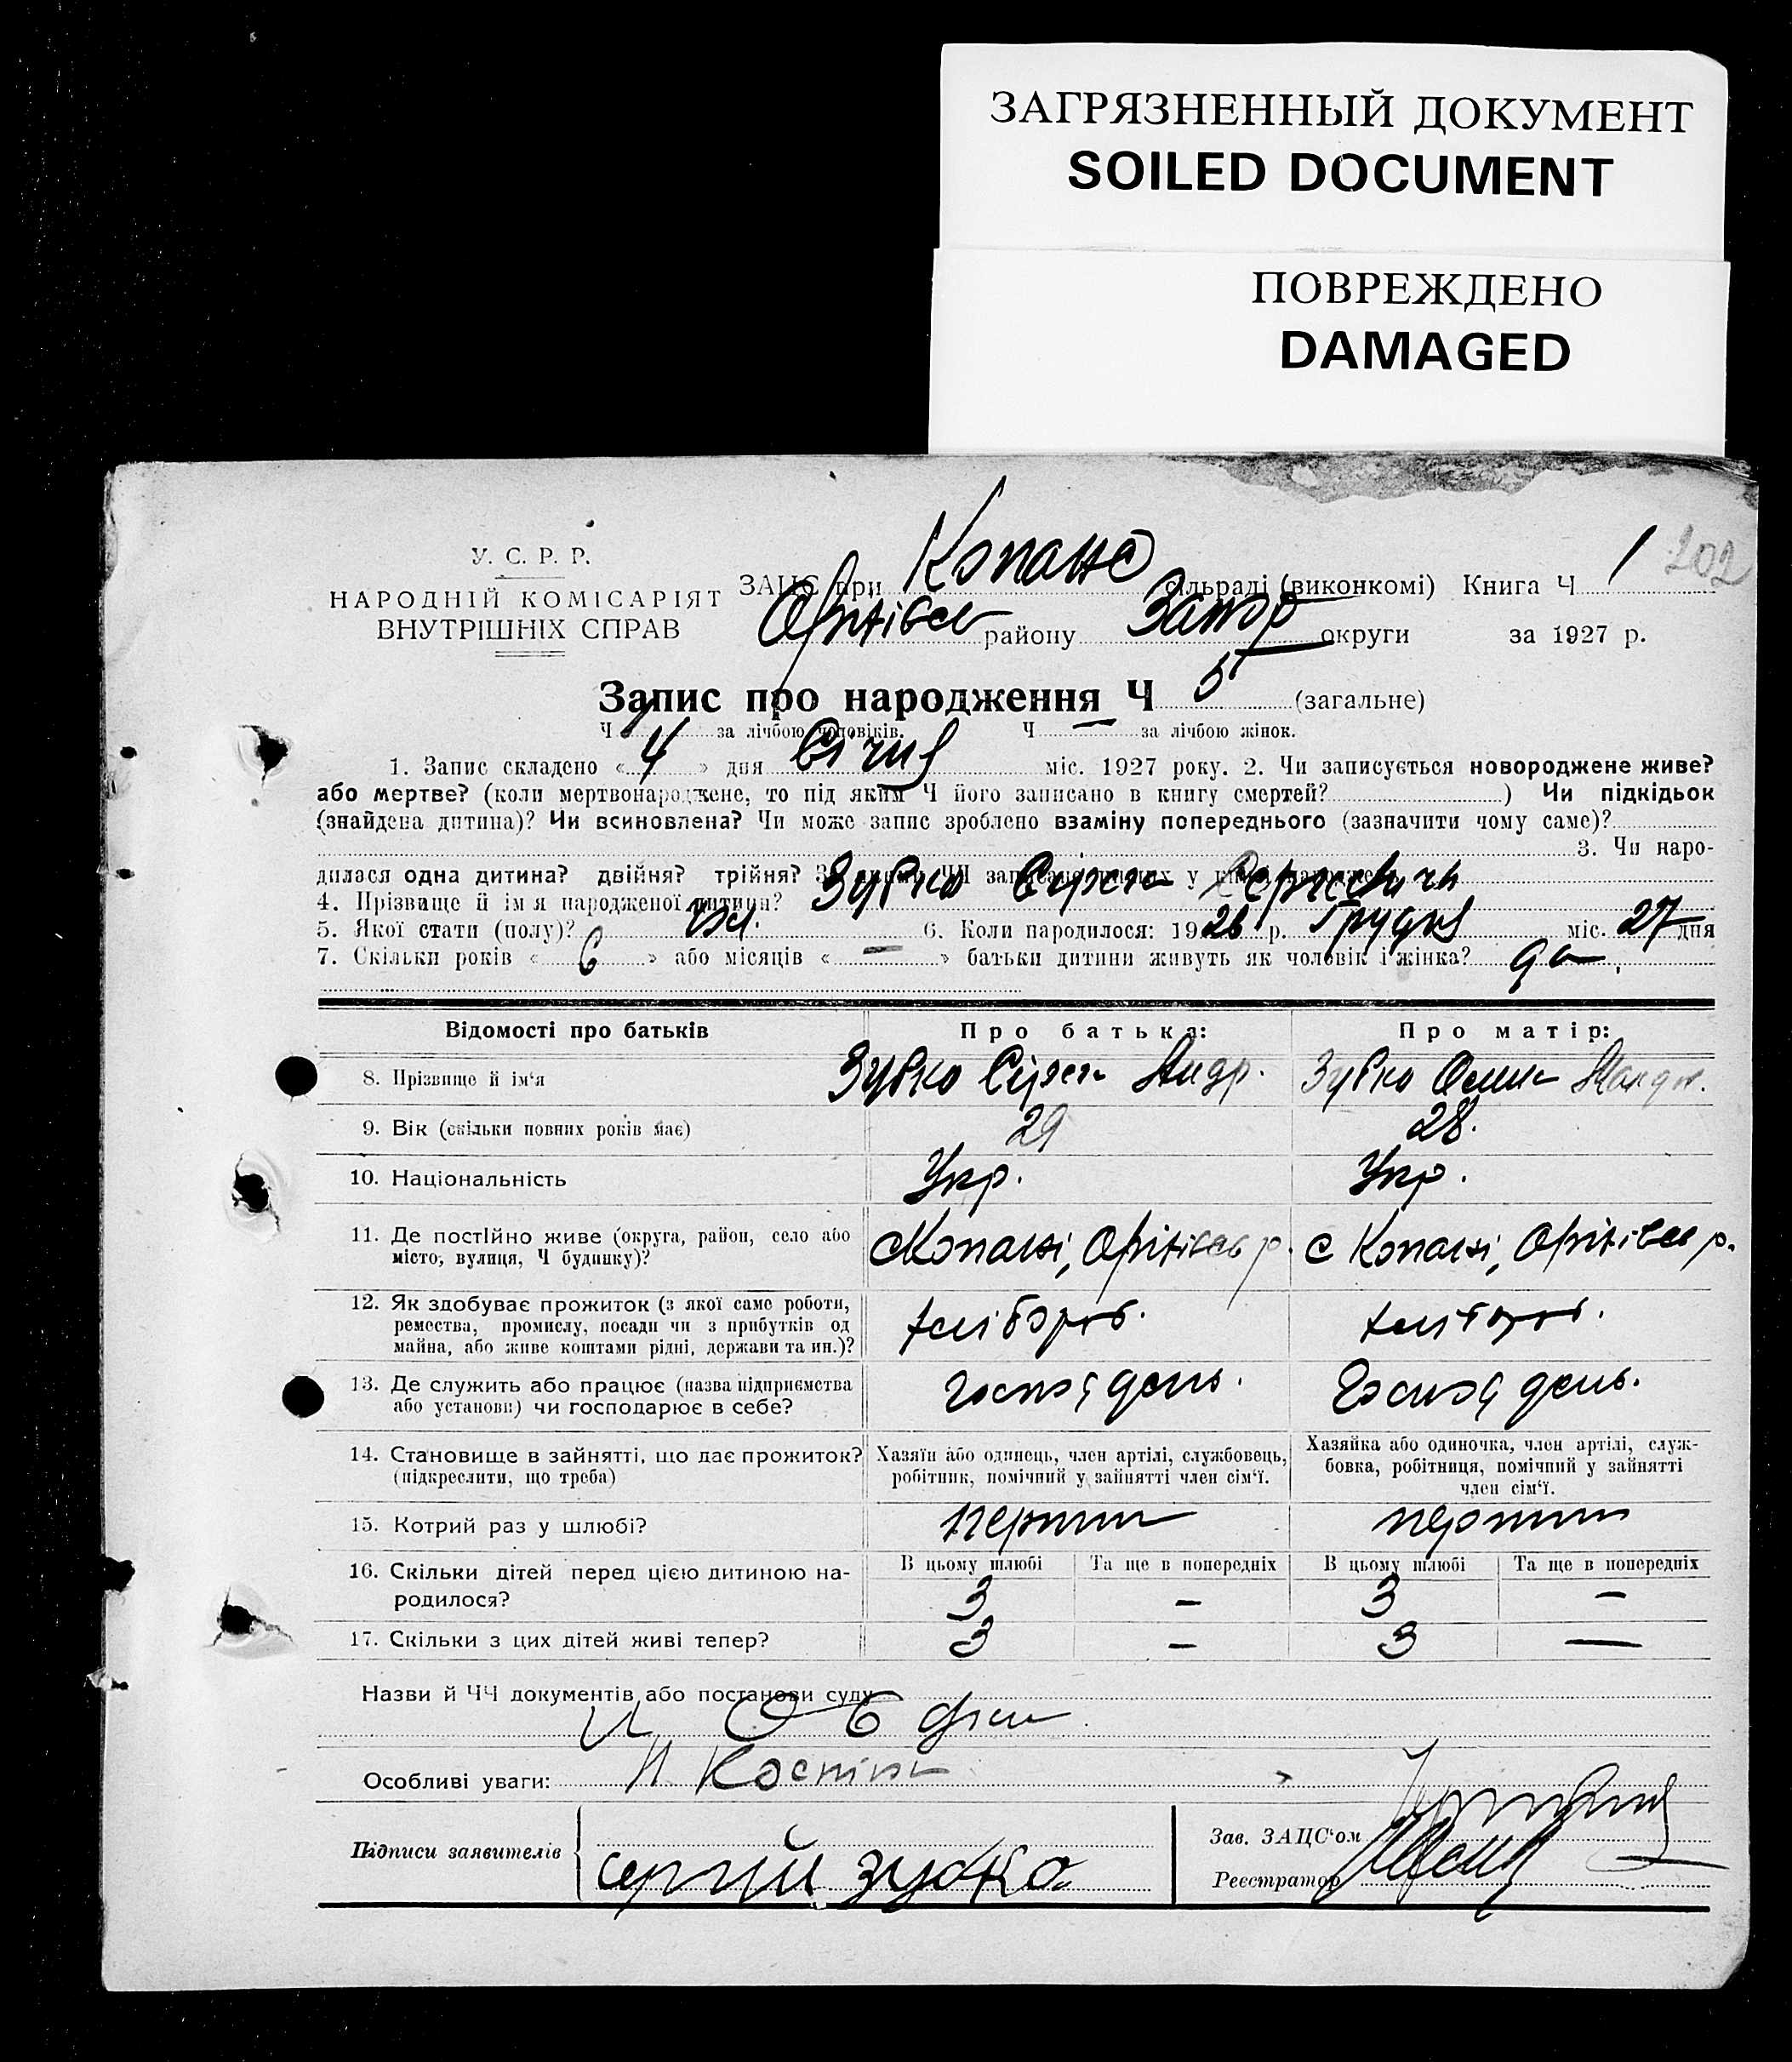 ЗАГРЯЗНЕННЫЙ ДОКУМЕНТ
SOILED DOCUMENT
ПОВРЕЖДЕНО
DAMAGED
202
У. С. Р. Р.
НАРОДНІЙ КОМІСАРІЯТ
ВНУТРІШНІХ СПРАВ
ЗАЦС при Копанс сільраді (виконкомі) Книга Ч 1
району Запор округи за 1927 р.
Запис про народження Ч 5 (загальне)
Ч 4 за лічбою чоловіків. Ч — за лічбою жінок.
1. Запис складено « 4 » дня Січня міс. 1927 року. 2. Чи записується новороджене живе?
або мертве? (коли мертвонароджене, то під яким Ч його записано в книгу смертей?) Чи підкідьок
(знайдена дитина)? Чи всиновлена? Чи може запис зроблено взаміну попереднього (зазначити чому саме)?
3. Чи наро-
дилася одна дитина? двійня? трійня?
4. Прізвище й ім'я народженої дитини? Зубко Сергій Сергієвич
5. Якої стати (полу)? 6. Коли народилося: 1926 р. Грудня міс. 27 дня
7. Скільки років « 6 » або місяців « — » батьки дитини живуть як чоловік і жінка? да.
Відомості про батьків Про батька: Про матір:
8. Прізвище й ім'я Зубко Андр. Зубко
9. Вік (скільки повних років має) 29 28.
10. Національність Укр. Укр.
11. Де постійно живе (округа, район, село або
місто, вулиця, Ч будинку)? с Копані, Оріхівськ р. с Копані, Оріхівск р.
12. Як здобуває прожиток (з якої саме роботи,
ремества, промислу, посади чи з прибутків од
майна, або живе коштами рідні, держави та ин.)? хлібороб. хлібороб.
13. Де служить або працює (назва підприємства
або установи) чи господарює в себе?
14. Становище в зайнятті, що дає прожиток?
(підкреслити, що треба)
Хазяїн або одинець, член артілі, службовець,
робітник, помічний у зайнятті член сім'ї.
Хазяйка або одиночка, член артілі, служ-
бовка, робітниця, помічний у зайнятті
член сім'ї.
15. Котрий раз у шлюбі? перший перший
В цьому шлюбі Та ще в попередніх В цьому шлюбі Та ще в попередніх
16. Скільки дітей перед цією дитиною на-
родилося? 3 — 3 —
17. Скільки з цих дітей живі тепер? 3 — 3 —
Назви й ЧЧ документів або постанови суду
Особливі уваги:
Підписи заявителів
Сергій Зубко
Зав. ЗАЦС'ом
Реєстратор